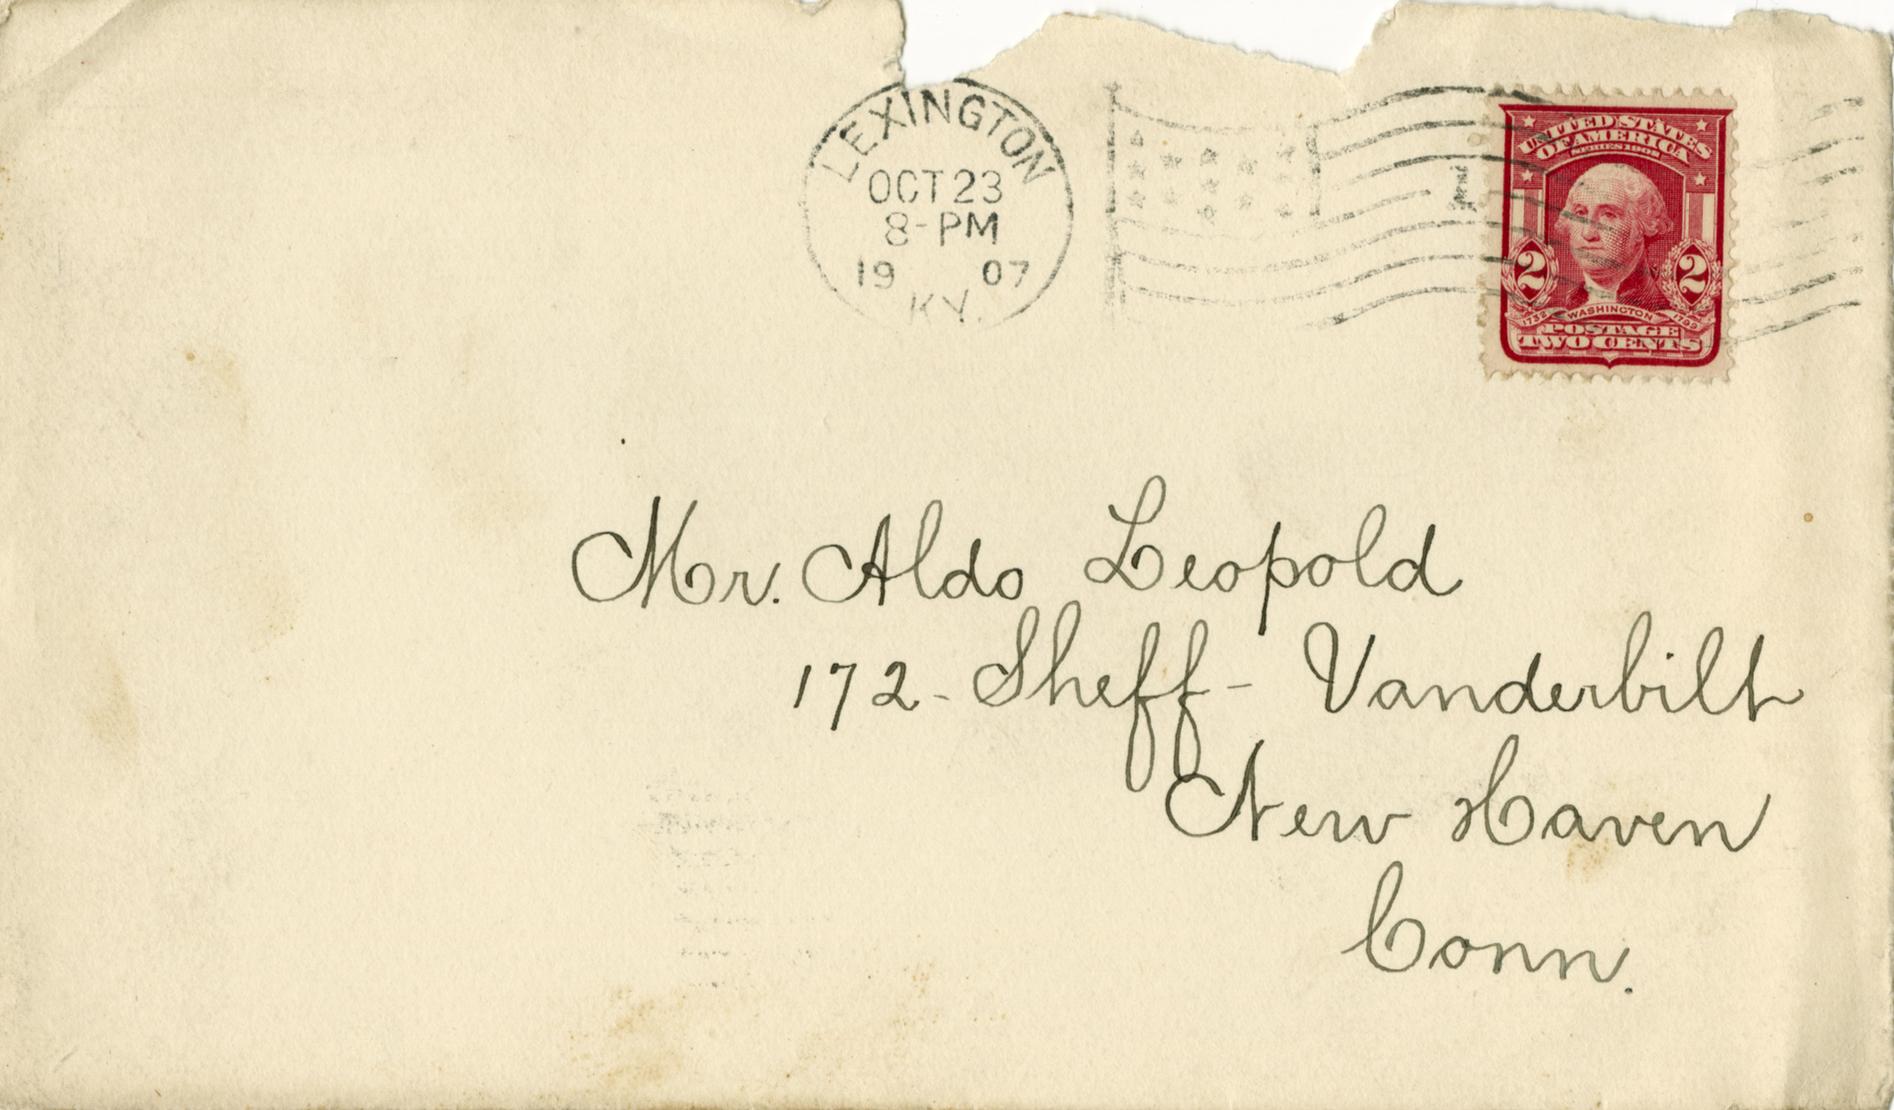 LEXINGTON
OCT 23
8-PM
1907
KY.
1
UNITED STATES
OF AMERICA
SERIES 1902
2 2
1732 WASHINGTON 1799
POSTAGE
TWO CENTS
Mr. Aldo Leopold
172 - Sheff - Vanderbilt
New Haven
Conn.